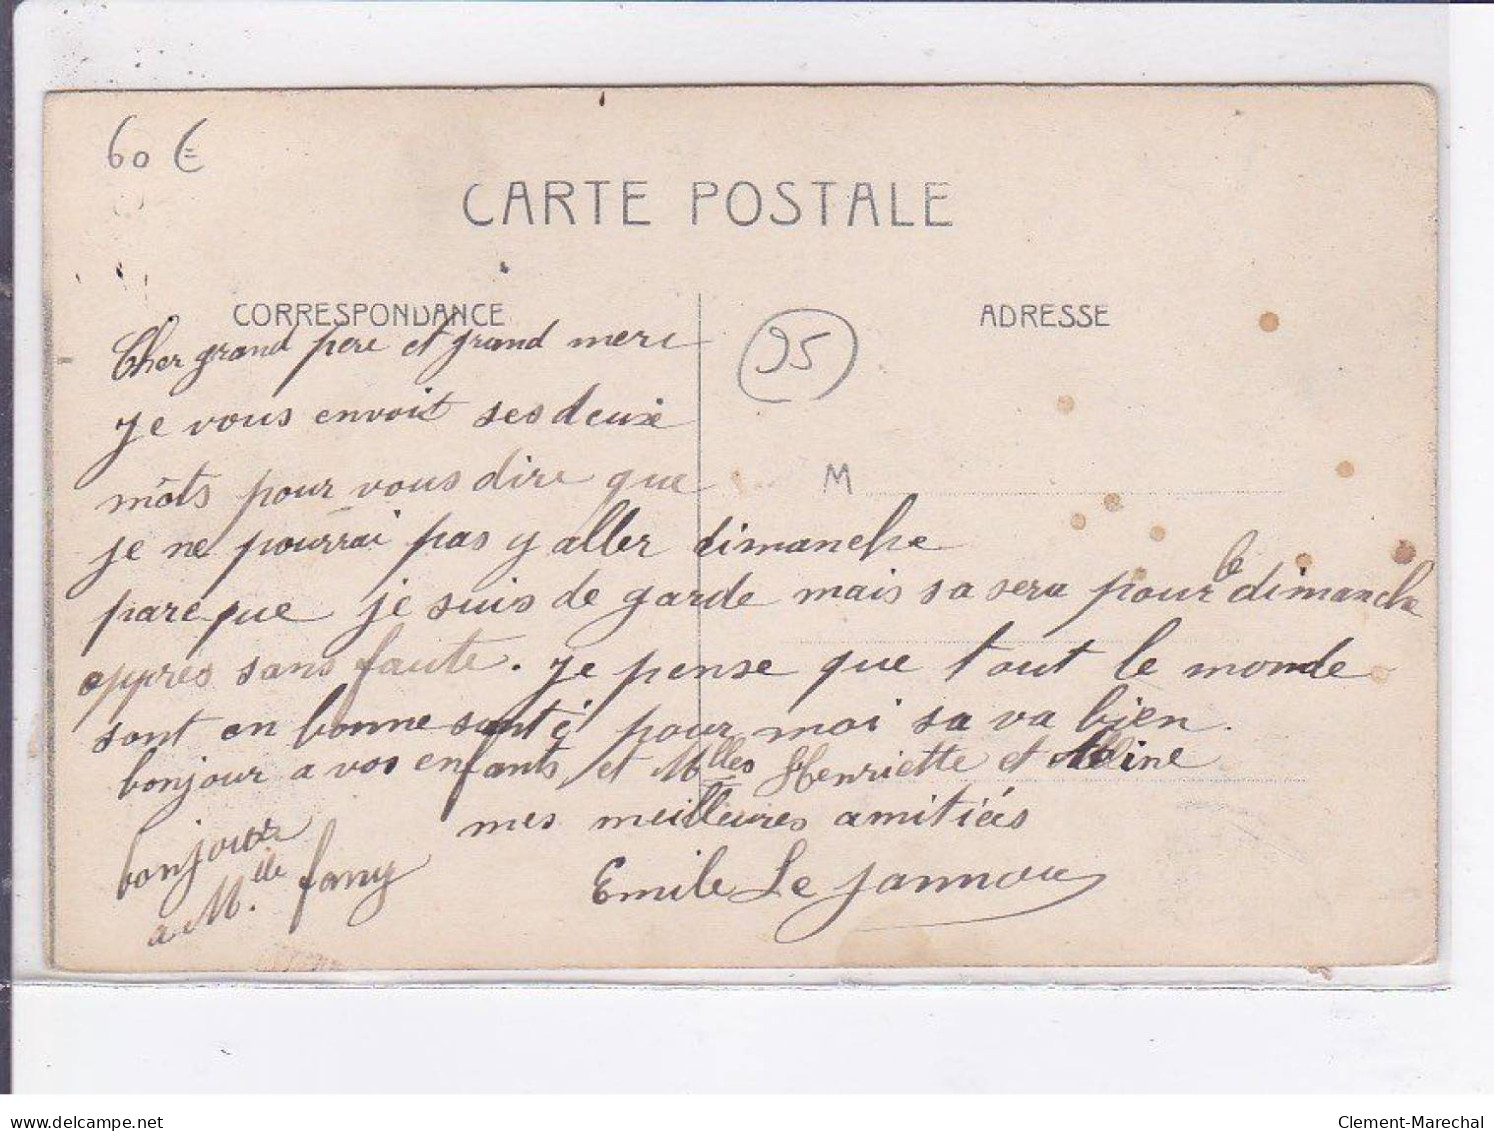 60 €
CARTE POSTALE
CORRESPONDANCE
ADRESSE
95
M
Cher grand pere et grand mere
Je vous envoit ses deux
mots pour vous dire que
je ne pourrai pas y aller dimanche
parceque je suis de garde mais sa sera pour le dimanche
appres sans faute. Je pense que tout le monde
sont en bonne santé pour moi sa va bien.
bonjour a vos enfants et Mlles Henriette et Aline
mes meilleures amitiés
bonjour
a Mlle fany
Emile Le Jannou
delcampe.net
Clement-Marechal